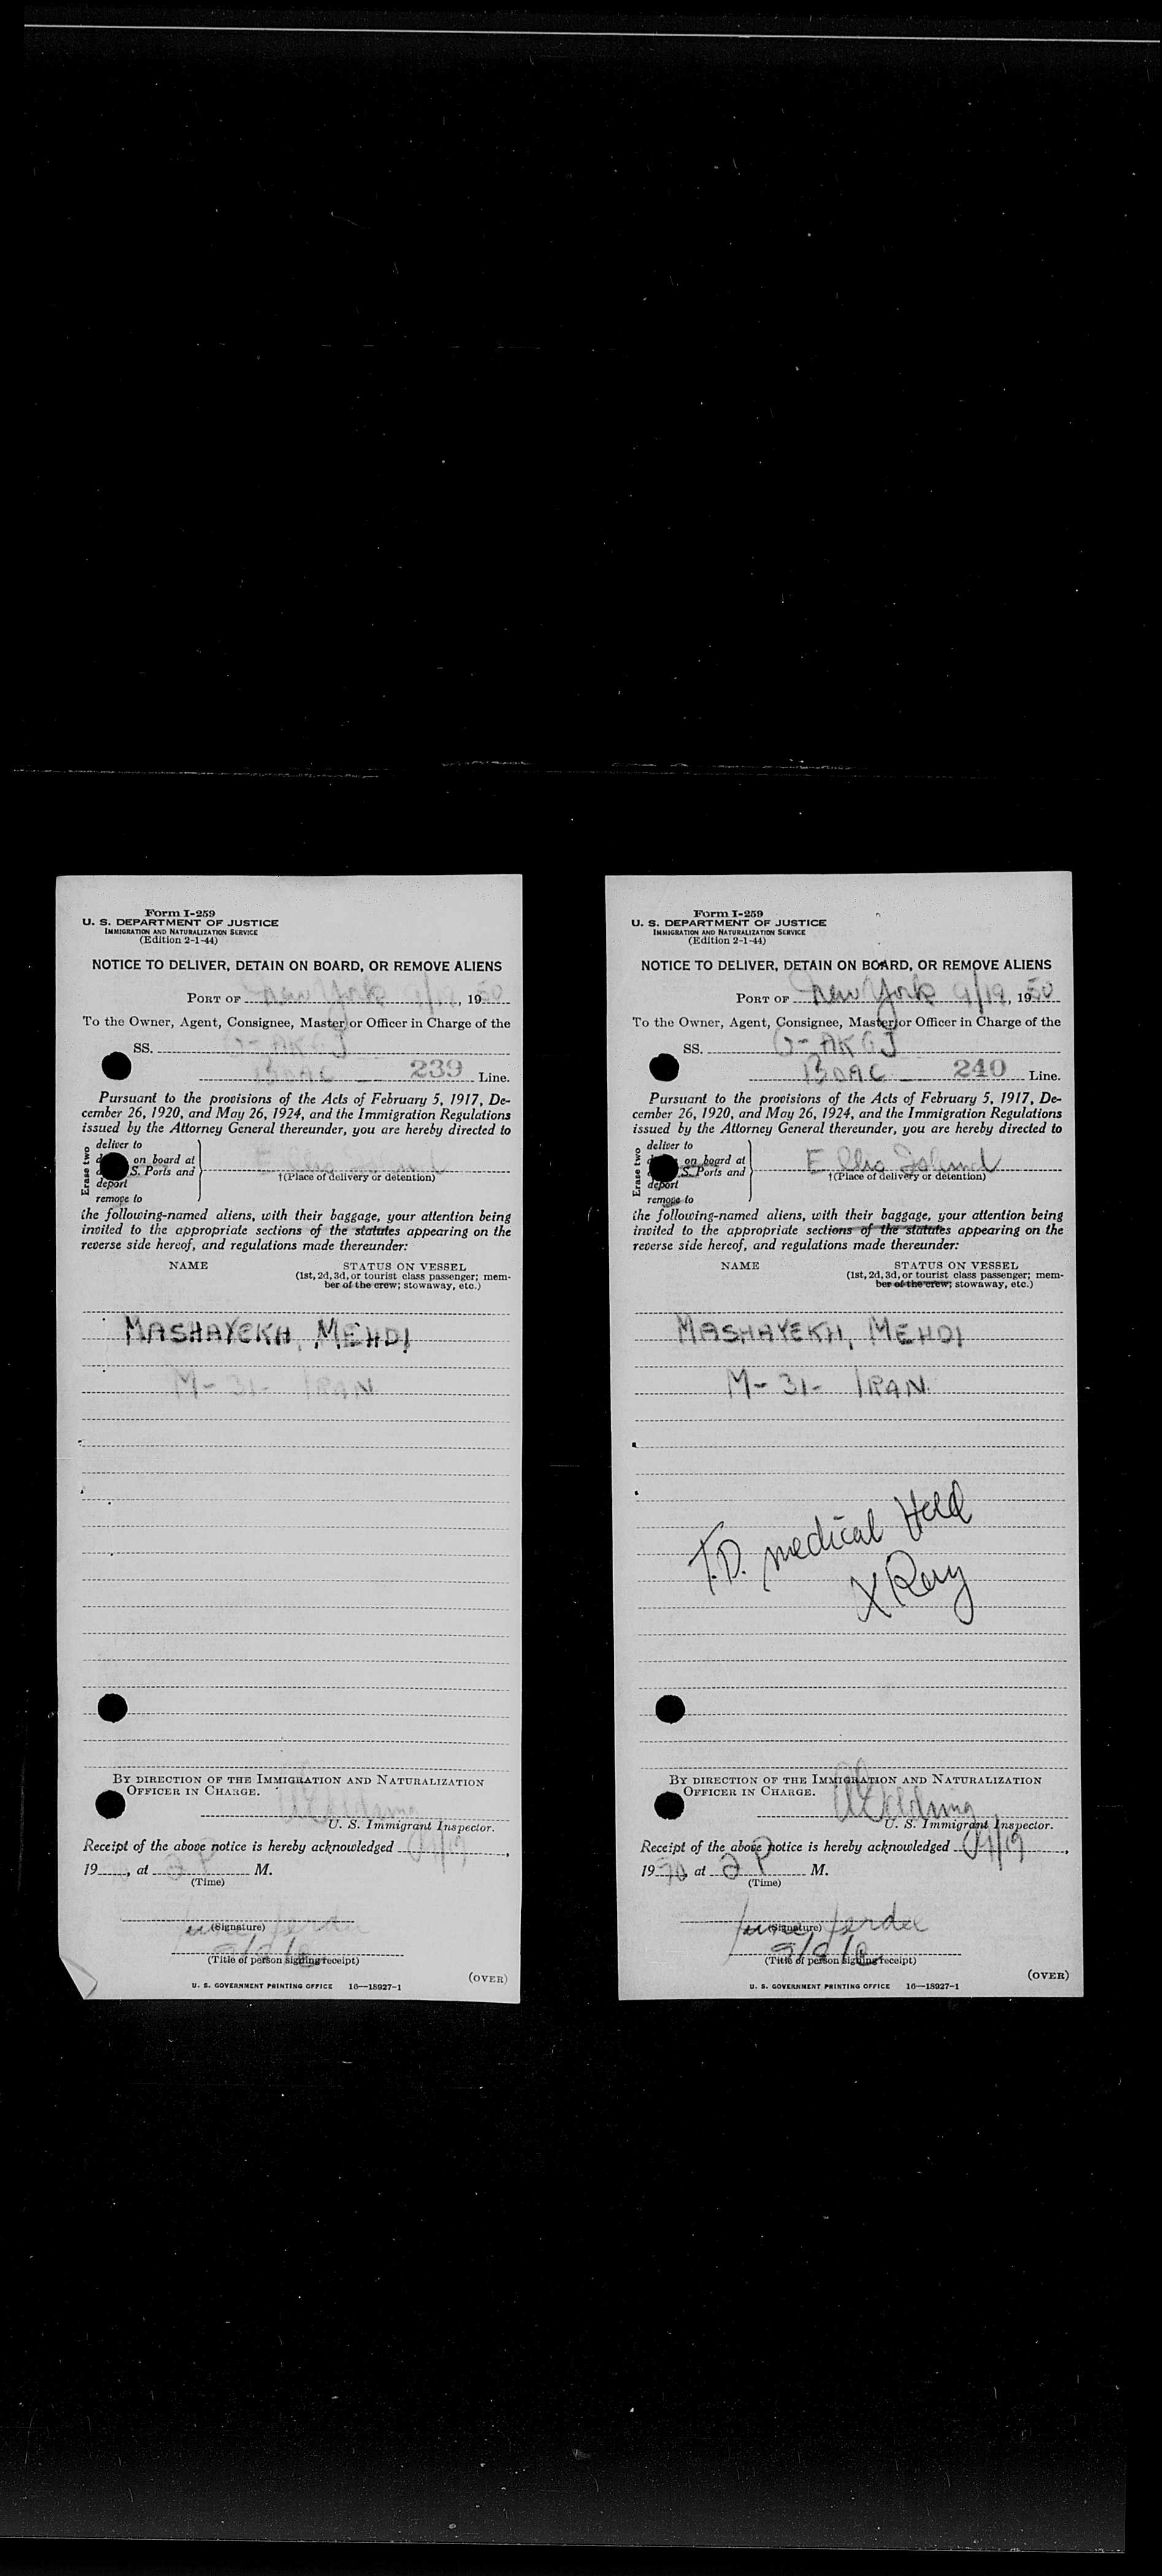 Form I-259
U. S. DEPARTMENT OF JUSTICE
IMMIGRATION AND NATURALIZATION SERVICE
(Edition 2-1-44)
NOTICE TO DELIVER, DETAIN ON BOARD, OR REMOVE ALIENS
PORT OF New York 9/19, 1950
To the Owner, Agent, Consignee, Master or Officer in Charge of the
SS. G-AKGJ
BOAC 239 Line.
Pursuant to the provisions of the Acts of February 5, 1917, De-
cember 26, 1920, and May 26, 1924, and the Immigration Regulations
issued by the Attorney General thereunder, you are hereby directed to
Erase two
deliver to
on board at
S. Ports and
deport
remove to
Ellis Island
†(Place of delivery or detention)
the following-named aliens, with their baggage, your attention being
invited to the appropriate sections of the statutes appearing on the
reverse side hereof, and regulations made thereunder:
NAME STATUS ON VESSEL
(1st, 2d, 3d, or tourist class passenger; mem-
ber of the crew; stowaway, etc.)
MASHAYEKH, MEHDI
M-31- IRAN
BY DIRECTION OF THE IMMIGRATION AND NATURALIZATION
OFFICER IN CHARGE.
U. S. Immigrant Inspector.
Receipt of the above notice is hereby acknowledged 9/19,
19, at 2 P M.
(Time)
(Signature)
(Title of person signing receipt)
(OVER)
U. S. GOVERNMENT PRINTING OFFICE 16—18927-1
Form I-259
U. S. DEPARTMENT OF JUSTICE
IMMIGRATION AND NATURALIZATION SERVICE
(Edition 2-1-44)
NOTICE TO DELIVER, DETAIN ON BOARD, OR REMOVE ALIENS
PORT OF New York 9/19, 1950
To the Owner, Agent, Consignee, Master or Officer in Charge of the
SS. G-AKGJ
BOAC 240 Line.
Pursuant to the provisions of the Acts of February 5, 1917, De-
cember 26, 1920, and May 26, 1924, and the Immigration Regulations
issued by the Attorney General thereunder, you are hereby directed to
Erase two
deliver to
on board at
S. Ports and
deport
remove to
Ellis Island
†(Place of delivery or detention)
the following-named aliens, with their baggage, your attention being
invited to the appropriate sections of the statutes appearing on the
reverse side hereof, and regulations made thereunder:
NAME STATUS ON VESSEL
(1st, 2d, 3d, or tourist class passenger; mem-
ber of the crew; stowaway, etc.)
MASHAYEKH, MEHDI
M-31- IRAN
T.D. medical Held
X Ray
BY DIRECTION OF THE IMMIGRATION AND NATURALIZATION
OFFICER IN CHARGE.
U. S. Immigrant Inspector.
Receipt of the above notice is hereby acknowledged 9/19,
1950, at 2 P M.
(Time)
(Signature)
(Title of person signing receipt)
(OVER)
U. S. GOVERNMENT PRINTING OFFICE 16—18927-1